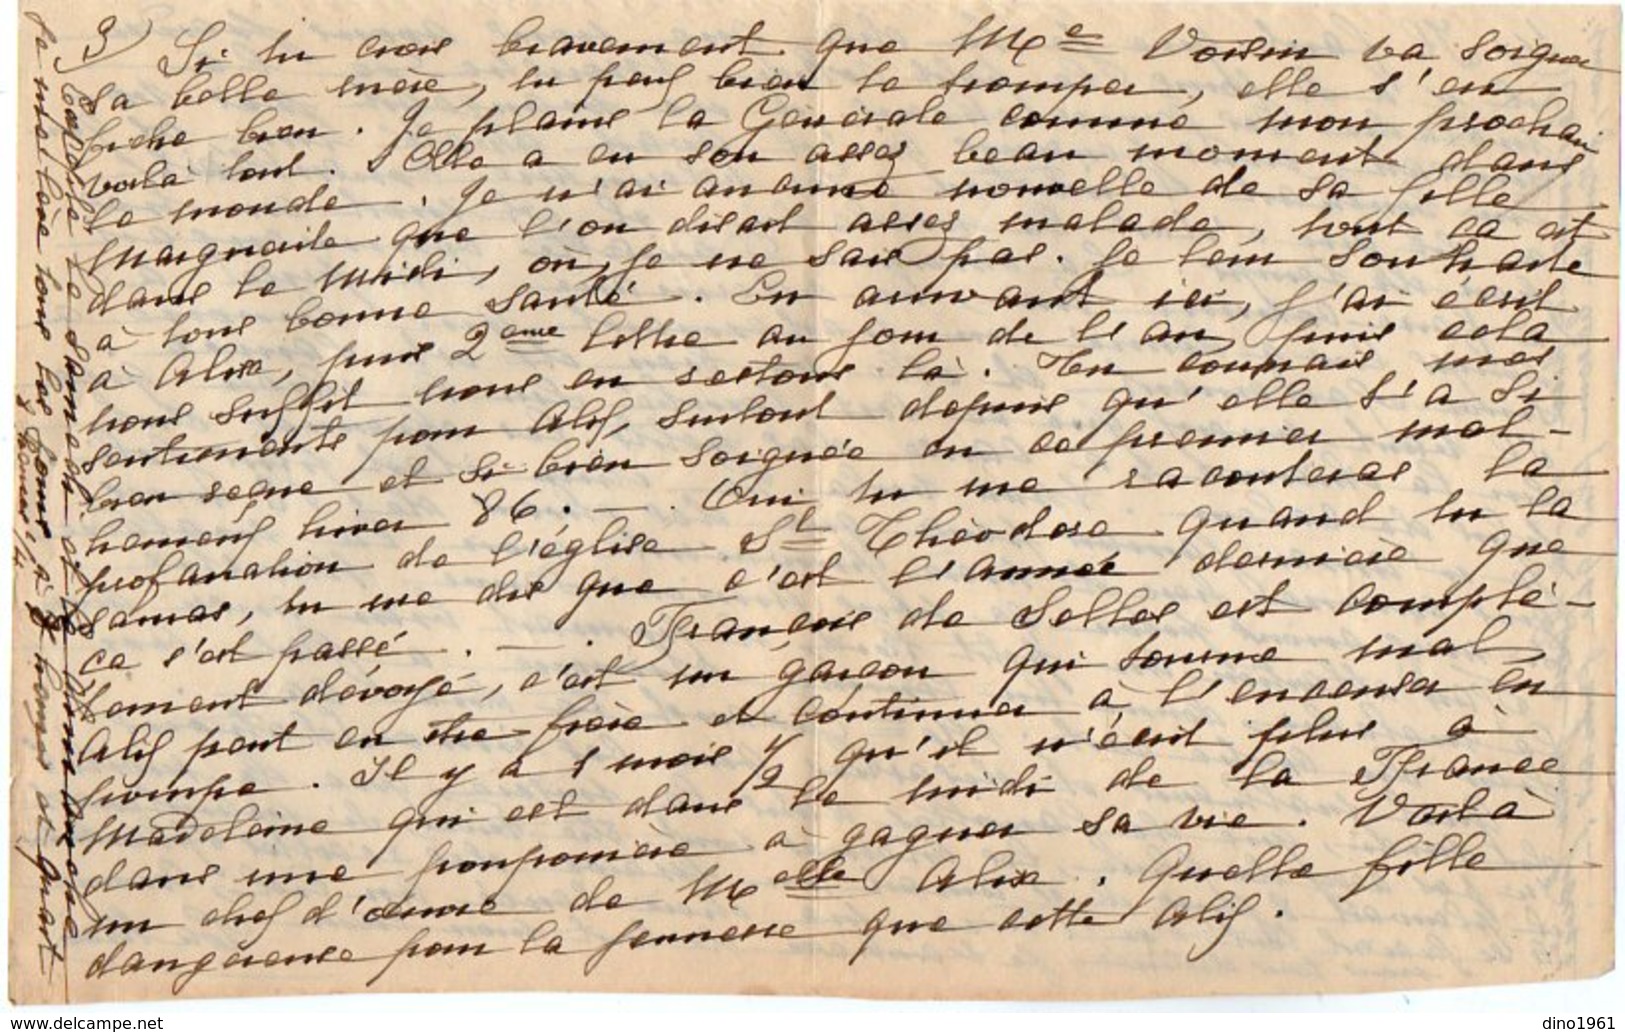 3) Si tu crois bravement que Me Voisin va soigner
sa belle mère, tu peux bien te tromper, elle s'en
fiche bien. Je plains la Générale comme mon prochain
voilà tout. Elle a eu son assez beau moment dans
le monde. Je n'ai aucune nouvelle de sa fille
Marguerite que l'on disait assez malade, tout ça est
dans le Midi, où, je ne sais pas. Je leur souhaite
à tous bonne santé. En arrivant ici, j'ai écrit
à Alix, puis 2eme lettre au jour de l'an, puis cela
nous suffit nous en restons là. Tu connais mes
sentiments pour Alix, surtout depuis qu'elle s'a si
bien et si bien soignée en ce premier mal-
heureux hiver 86. — . Oui tu me raconteras la
profanation de l'église St Théodose quand tu la
sauras, tu me dis que c'est l'année dernière que
ce s'est passé. — . François de Selles est complè-
tement dévoyé, c'est un garçon qui tourne mal,
Alix peut en être fière et continuer à l'encenser en
pompe. Il y a 1 mois 1/2 qu'il n'écrit plus à
Madeleine qui est dans le midi de la France
dans une pouponnière à gagner sa vie. Voilà
un chef d'œuvre de Melle Alix. Quelle fille
dangereuse pour la jeunesse que cette Alix.
le samedi et le dimanche
Je me lève tous les jours à heures et quart
www.delcampe.net
dino1961